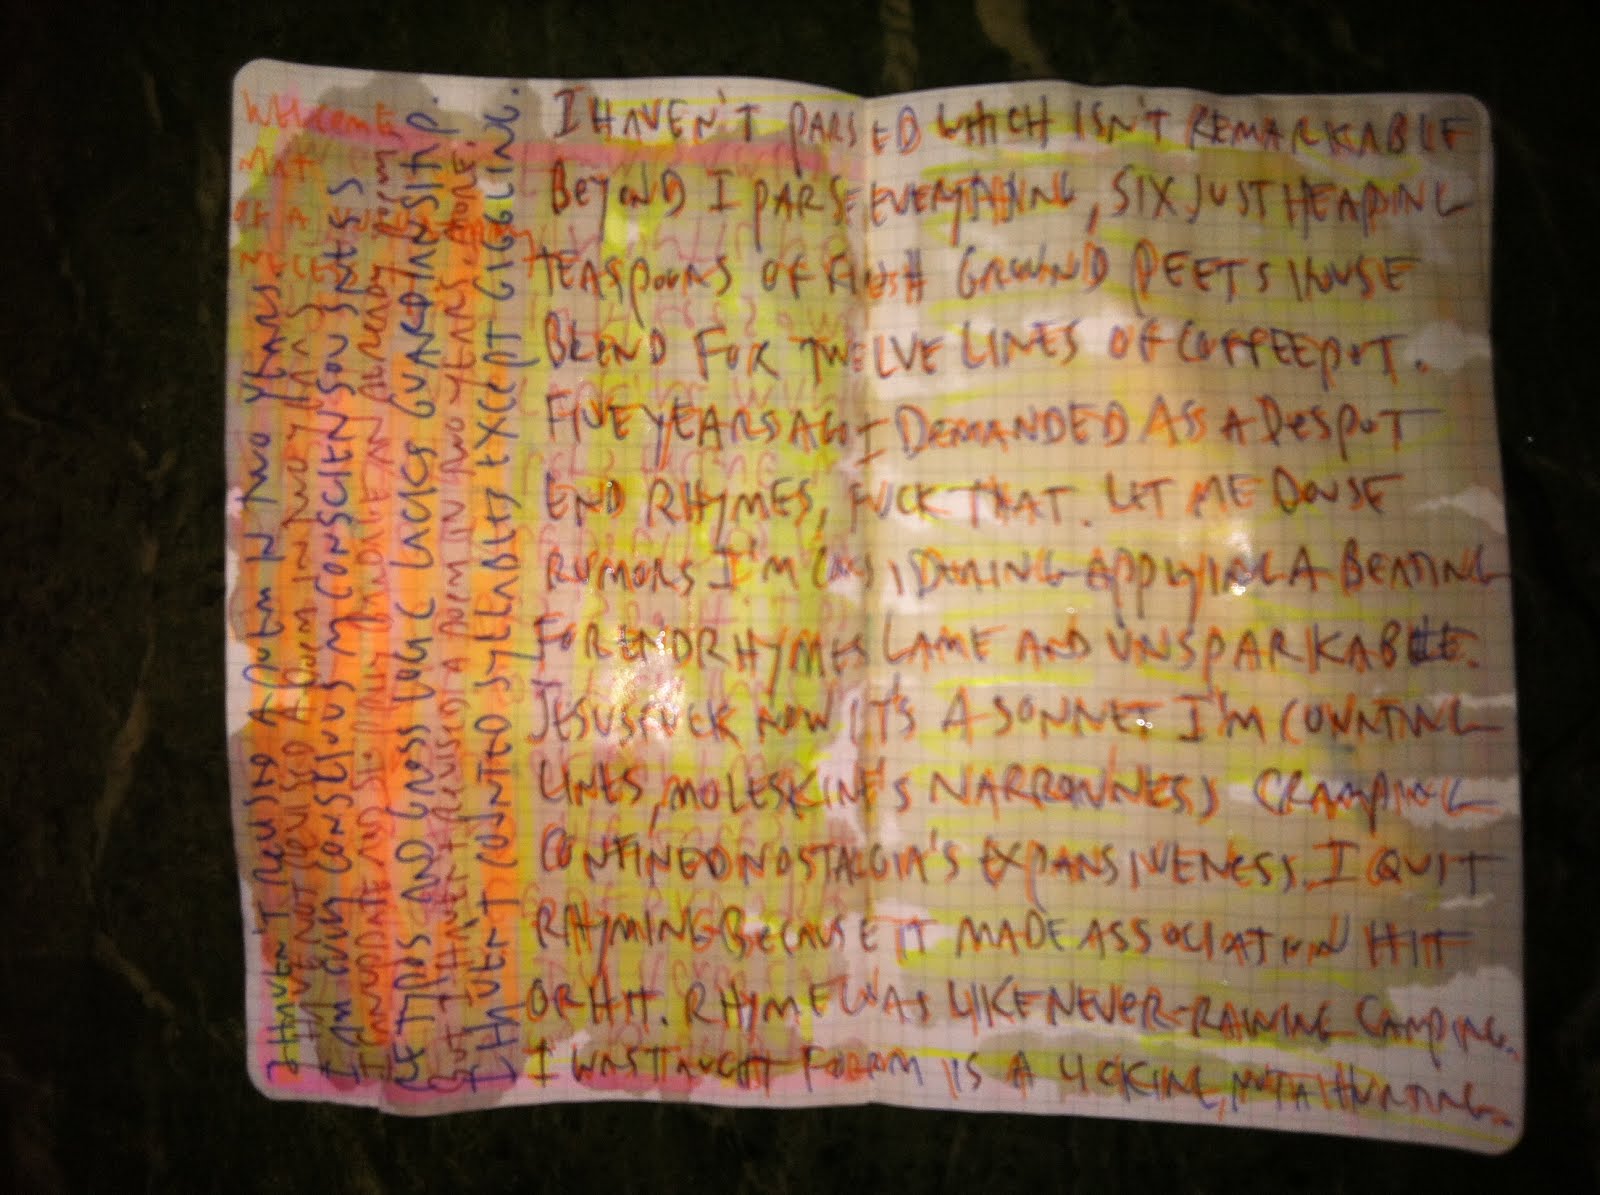 I HAVEN'T PARSED WHICH ISN'T REMARKABLE
BEYOND I PARSE EVERYTHING, SIX JUST HEAPING
TEASPOONS OF FRESH GROUND PEETS HOUSE
BLEND FOR TWELVE LINES OF COFFEEPOT.
FIVE YEARS AGO I DEMANDED AS A DESPOT
END RHYMES, FUCK THAT. LET ME DOUSE
RUMORS I'M CONSIDERING APPLYING A BEATING
FOR END RHYMES LAME AND UNSPARKABLE.
JESUSFUCK NOW IT'S A SONNET I'M COUNTING
LINES, MOLESKINE'S NARROWNESS CRAMPING
CONFINED NOSTALGIA'S EXPANSIVENESS. I QUIT
RHYMING BECAUSE IT MADE ASSOCIATION HIT
OR HIT. RHYME WAS LIKE NEVER-RAINING CAMPING.
I WAS TAUGHT FORM IS A LICKING, NOT A HUNTING.
WELCOME
MAT
OF A
I HAVEN'T REUSED A POEM IN TWO YEARS.
I HAVE NOT A POEM IN TWO YEARS
I AM ONLY CONSCIOUS MY CONSCIENSOUSNESS
I CAN UPDATE AND ONLY UPDATE AN ALREADY POEM
OF TYPOS AND GROSS LOGIC LACKS GUARDIANSHIP.
BUT I HAVEN'T REVISED A POEM IN TWO YEARS
I HAVEN'T COUNTED SYLLABLES EXCEPT GIGGLING.